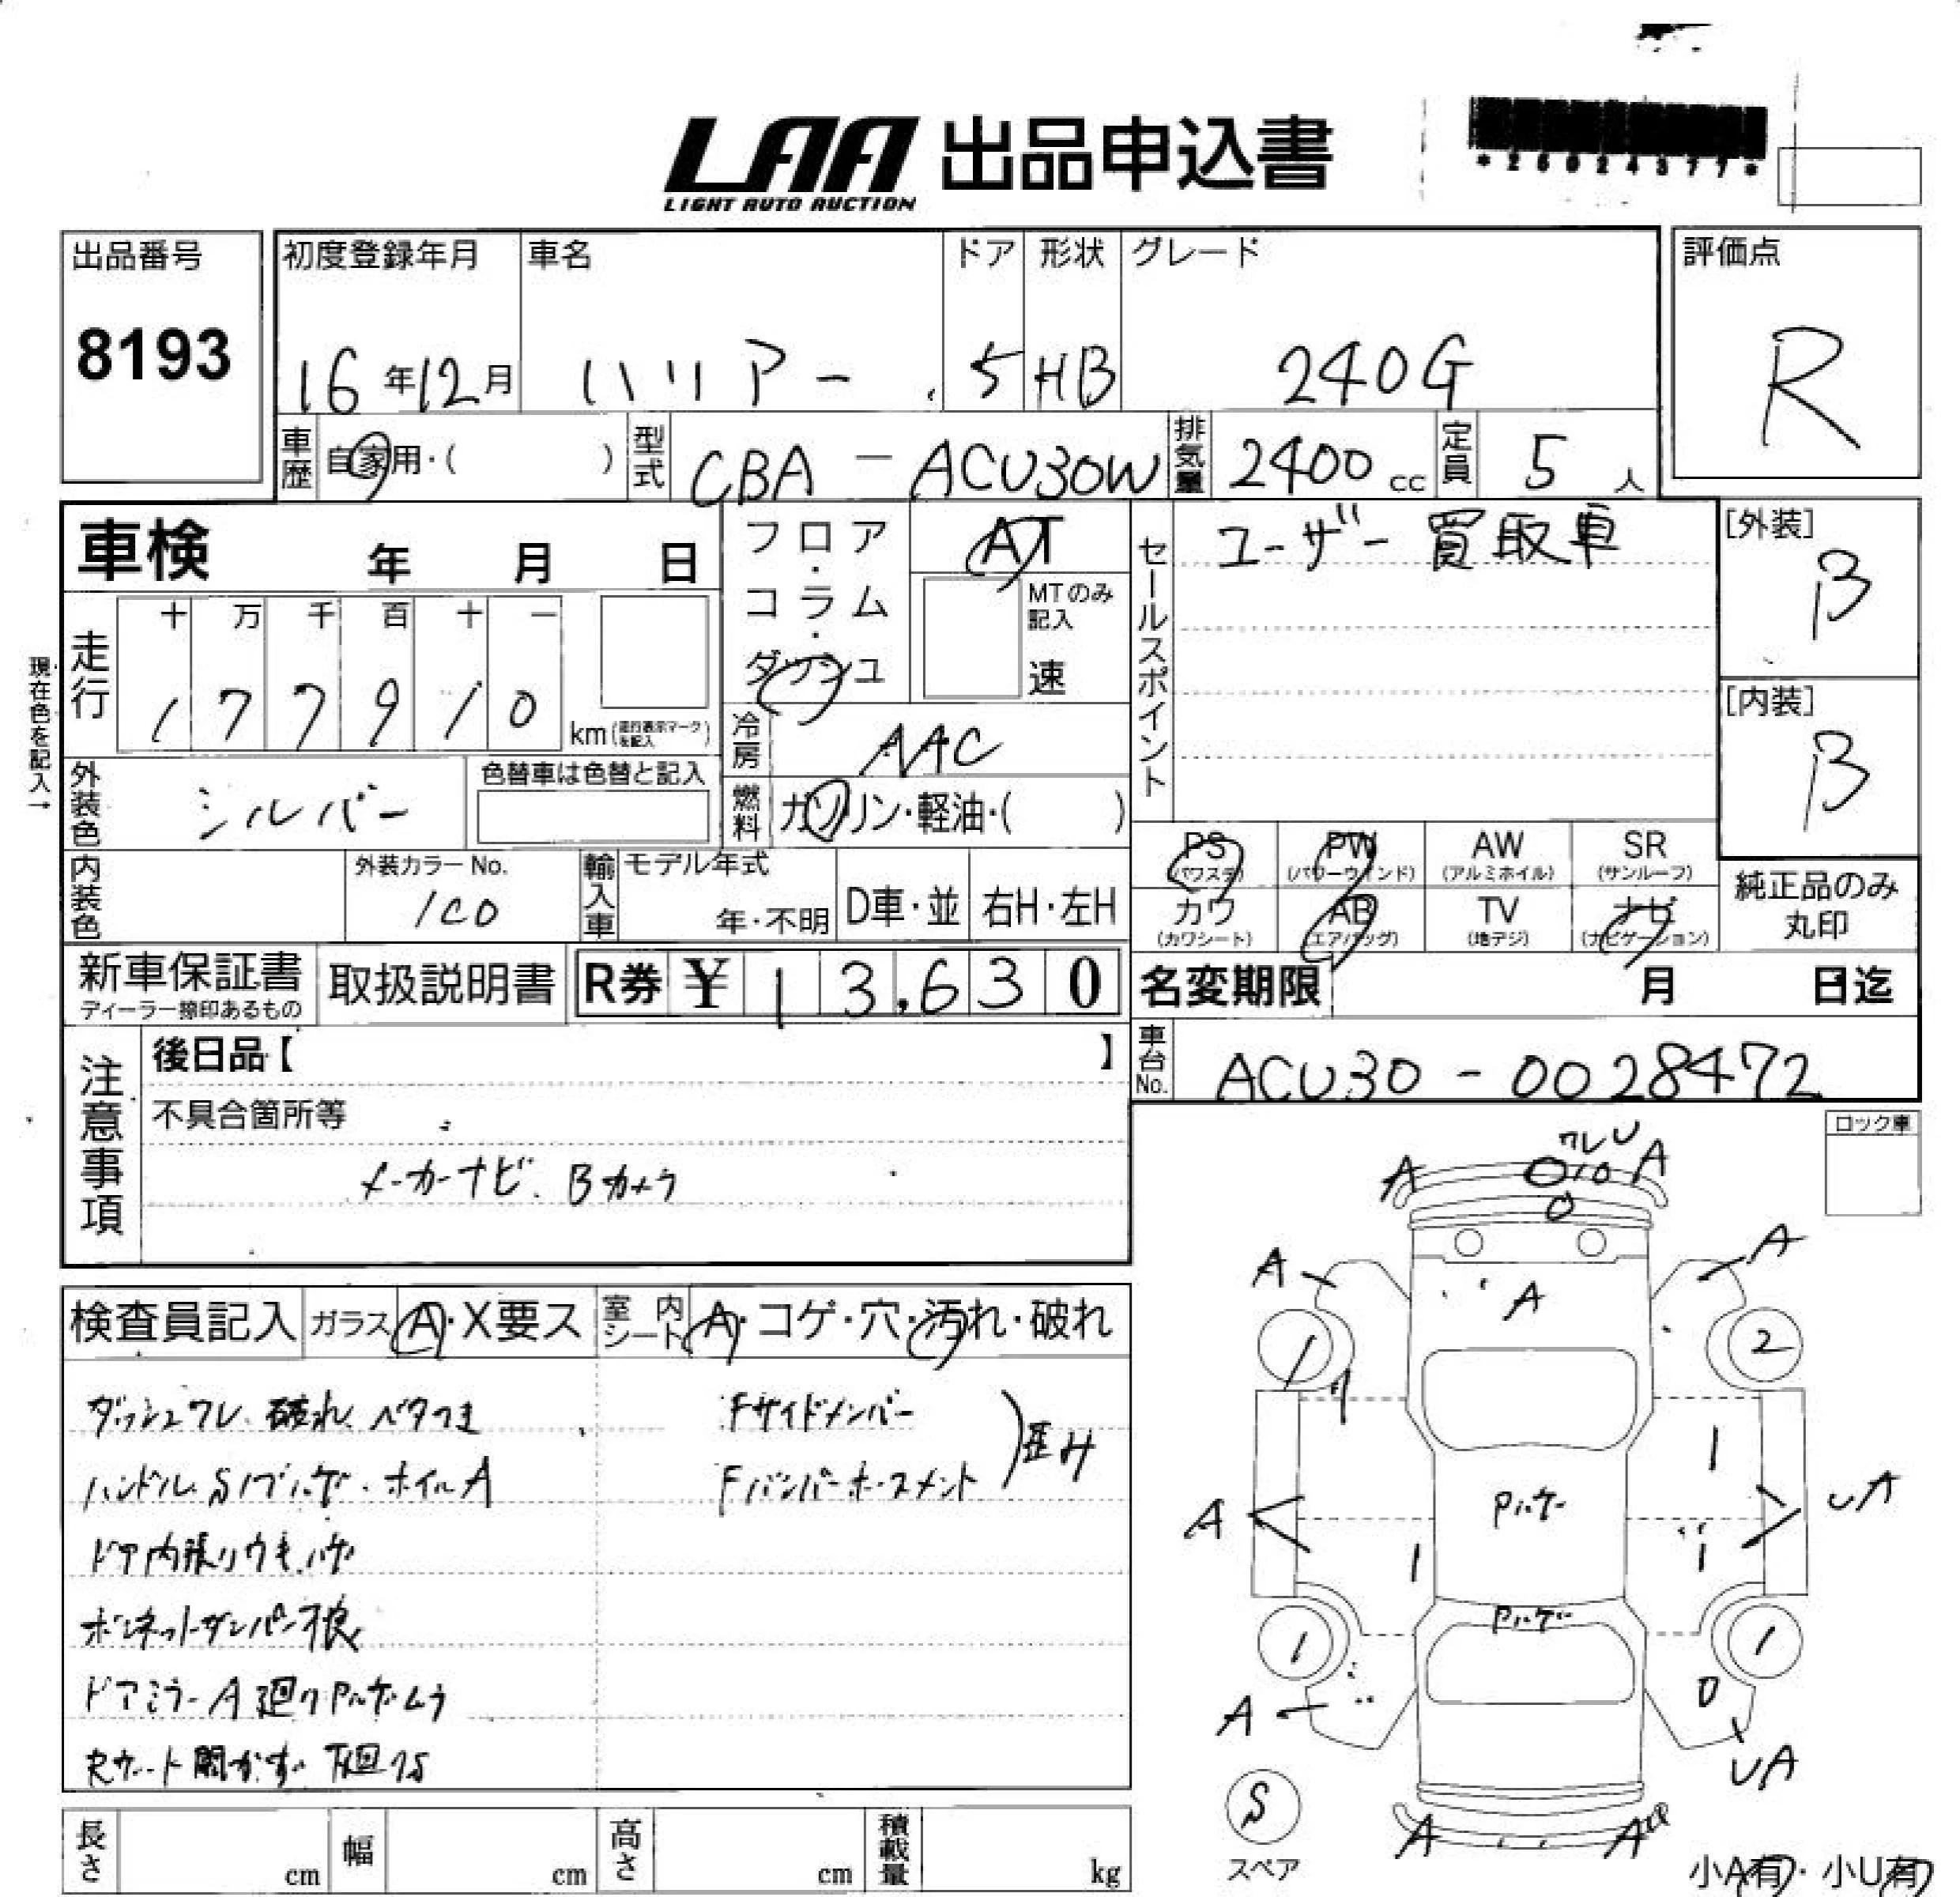 LAA 出品申込書
LIGHT AUTO AUCTION
*26024377*
出品番号
8193
初度登録年月 車名 ドア 形状 グレード
16年12月 ハリアー 5 HB 240G
評価点
R
車歴 自家用・( ) 型式 CBA - ACU30W 排気量 2400 cc 定員 5 人
車検 年 月 日
フロア・コラム・ダッシュ
AT
MTのみ記入
速
セールスポイント
ユーザー買取車
[外装]
B
[内装]
B
現在色を記入→
走行 十 万 千 百 十 一
1 7 7 9 1 0 km(走行表示マークを記入)
冷房 AAC
外装色 シルバー 色替車は色替と記入
燃料 ガソリン・軽油・( )
内装色 外装カラーNo. 1C0
輸入車 モデル年式 年・不明 D車・並 右H・左H
PS (パワステ) PW (パワーウインド) AW (アルミホイル) SR (サンルーフ)
カワ (カワシート) AB (エアバッグ) TV (地デジ) ナビ (ナビゲーション)
純正品のみ丸印
新車保証書 ディーラー捺印あるもの 取扱説明書 R券 ¥ 13,630
名変期限 月 日迄
車台No. ACU30-0028472
注意事項
後日品【 】
不具合箇所等
メーカーナビ. Bカメラ
ロック車
検査員記入 ガラス A・X要ス 室内シート A・コゲ・穴・汚れ・破れ
ダッシュワレ、破れ、ベタつき
Fサイドメンバー
ハンドル、S1ブハゲ・ホイルA
Fバンパーホースメント
歪み
ドア内張りウキ、ハゲ
ボンネットダンパー不良
ドアミラーA 廻りPハゲムラ
Rゲート開かず 下廻りS
ワレ U
A A
A A
A
1 2
1
Pハゲ
A UA
1 1
Pハゲ
1 1
A
UA
S
スペア
A A
小A有・小U有
長さ cm 幅 cm 高さ cm 積載量 kg